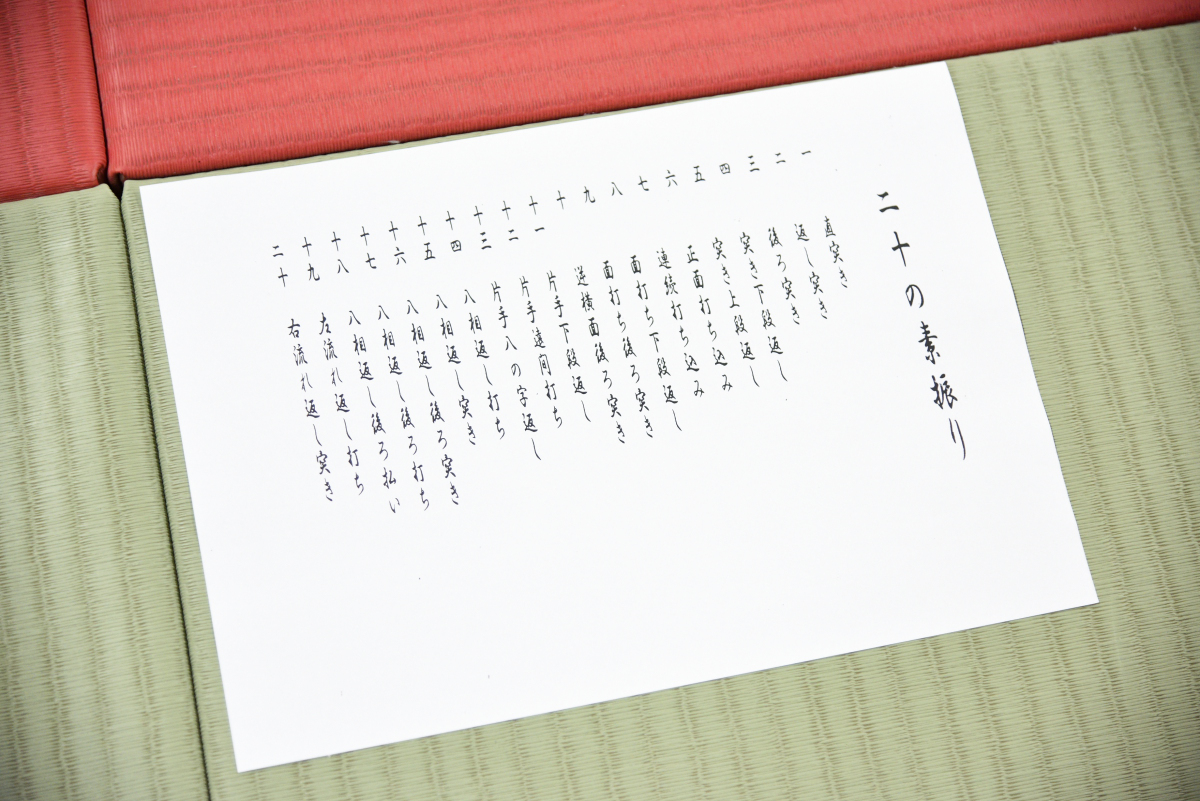 二十の素振り
一 直突き
二 返し突き
三 後ろ突き
四 突き下段返し
五 突き上段返し
六 正面打ち込み
七 連続打ち込み
八 面打ち下段返し
九 面打ち後ろ突き
十 逆横面後ろ突き
十一 片手下段返し
十二 片手遠間打ち
十三 片手八の字返し
十四 八相返し打ち
十五 八相返し突き
十六 八相返し後ろ突き
十七 八相返し後ろ打ち
十八 八相返し後ろ払い
十九 左流れ返し打ち
二十 右流れ返し突き